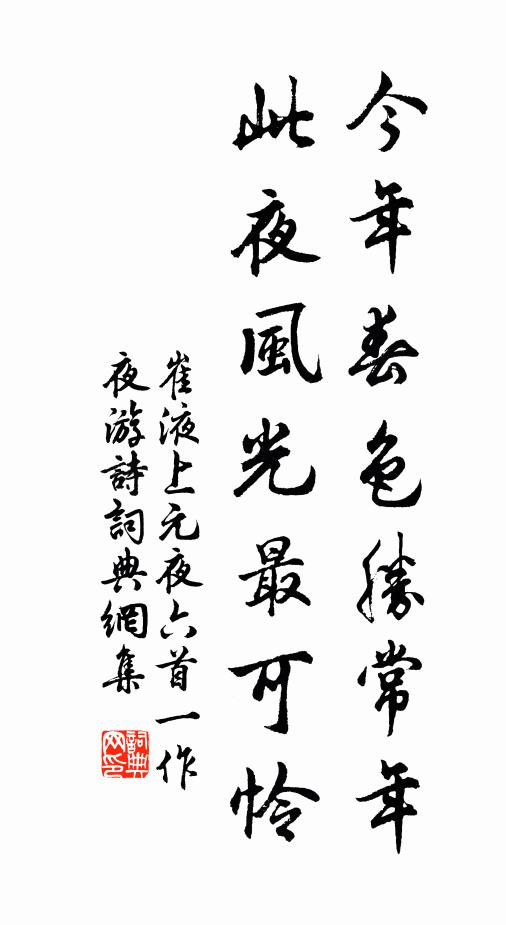 今年春色勝常年
此夜風光最可怜
崔液上元夜六首一作
夜游詩詞典網集
詞典
网印